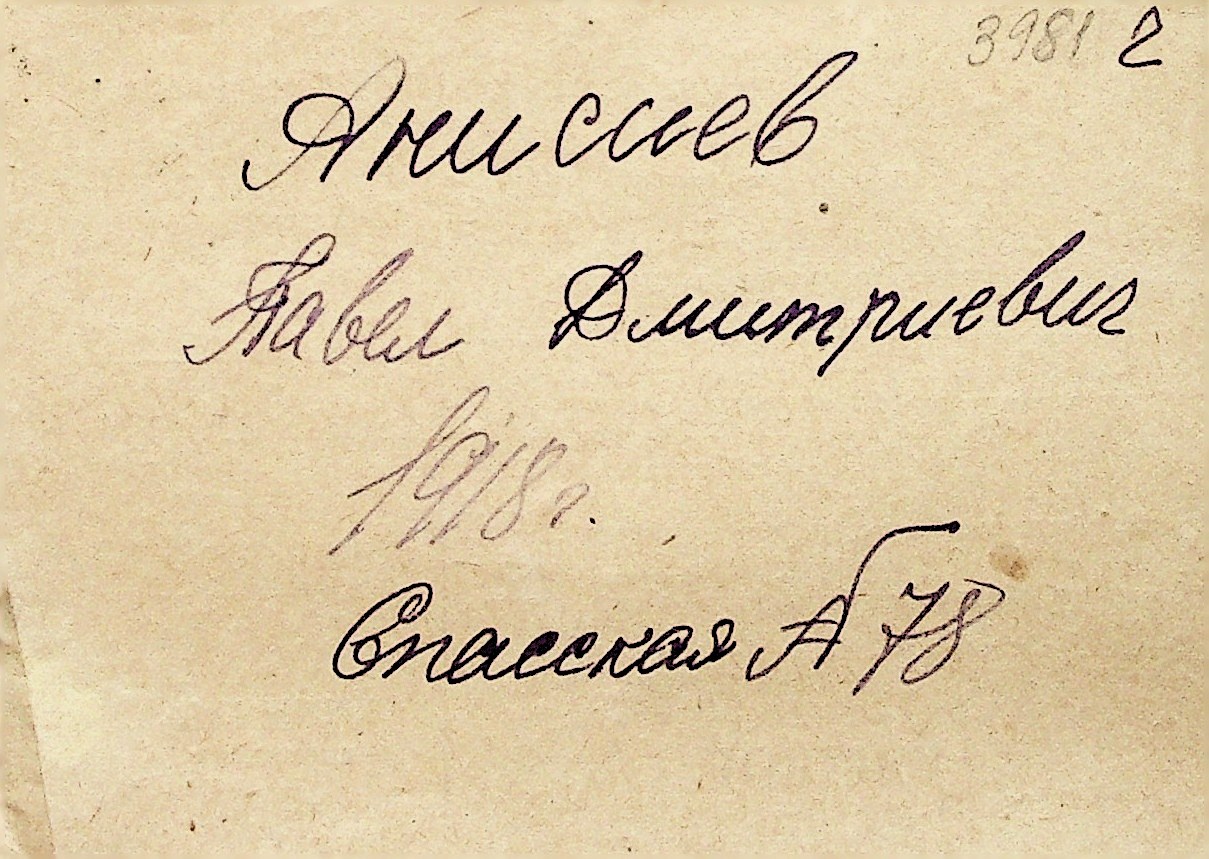 3981 2
Анисиев
Павел Дмитриевич
1918 г.
Спасская № 78